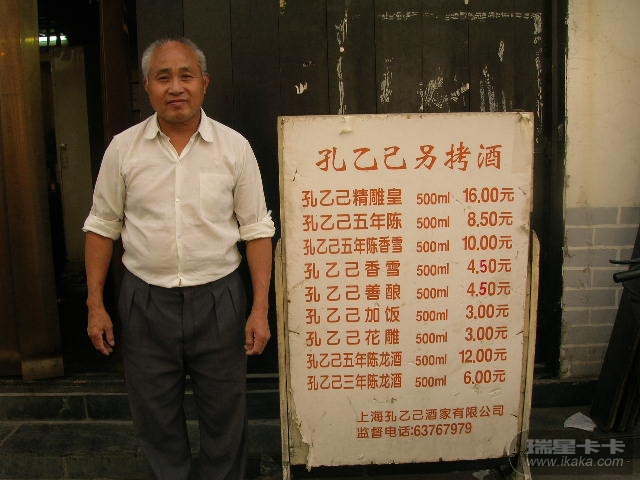 孔乙己另拷酒
孔乙己精雕皇 500ml 16.00元
孔乙己五年陈 500ml 8.50元
孔乙己五年陈香雪 500ml 10.00元
孔乙己香雪 500ml 4.50元
孔乙己善酿 500ml 4.50元
孔乙己加饭 500ml 3.00元
孔乙己花雕 500ml 3.00元
孔乙己五年陈龙酒 500ml 12.00元
孔乙己三年陈龙酒 500ml 6.00元
上海孔乙己酒家有限公司
监督电话:63767979
瑞星卡卡
www.ikaka.com